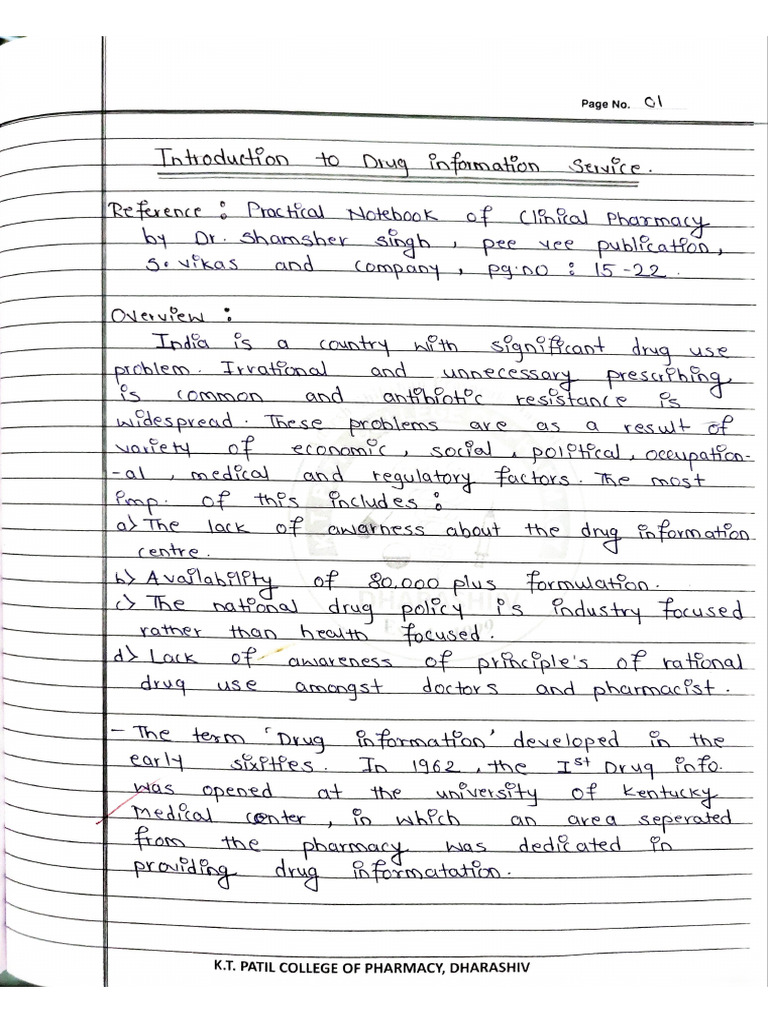 Page No. 01
Introduction to Drug information Service.
Reference : Practical Notebook of Clinical Pharmacy
by Dr. Shamsher Singh, pee vee publication,
S. vikas and company, pg.no : 15-22.
Overview :
India is a country with significant drug use
problem. Irrational and unnecessary prescribing
is common and antibiotic resistance is
widespread. These problems are as a result of
variety of economic, social, political, occupation-
-al, medical and regulatory factors. The most
imp. of this includes :
a) The lack of awarness about the drug information
centre.
b) Availability of 80,000 plus formulation.
c) The national drug policy is industry focused
rather than health focused.
d) Lack of awareness of principle's of rational
drug use amongst doctors and pharmacist.
- The term 'Drug information' developed in the
early sixities. In 1962, the Ist Drug info.
was opened at the university of Kentucky
Medical center, in which an area seperated
from the pharmacy was dedicated in
providing drug informatation.
K.T. PATIL COLLEGE OF PHARMACY, DHARASHIV